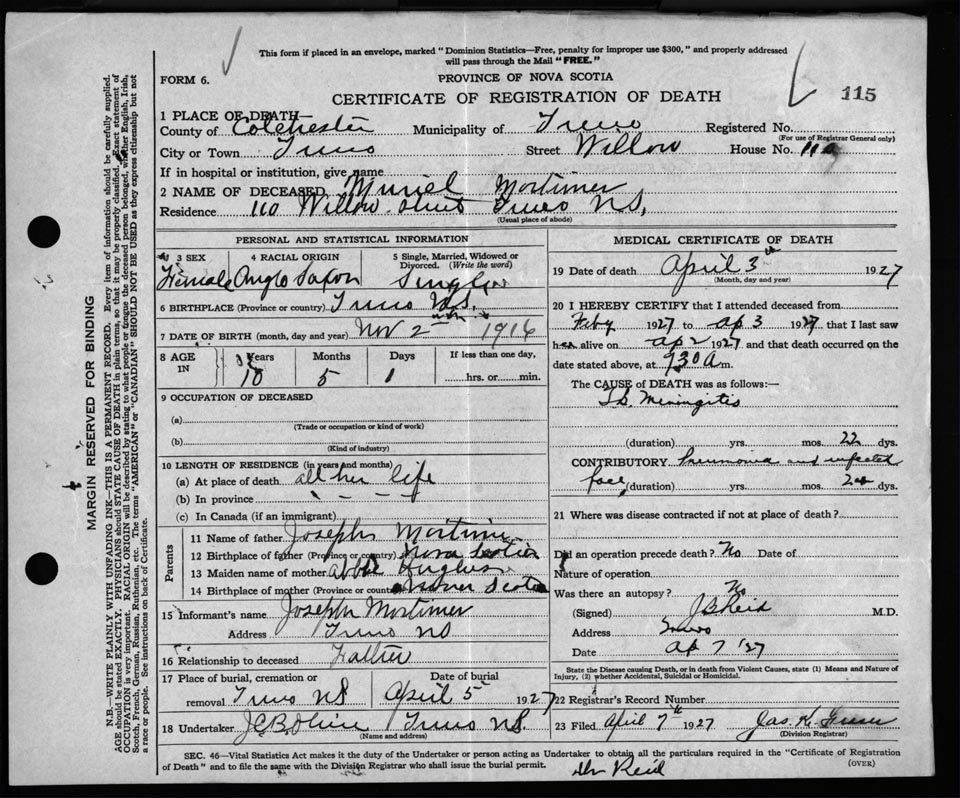 This form if placed in an envelope, marked "Dominion Statistics—Free, penalty for improper use $300," and properly addressed
will pass through the Mail "FREE."
FORM 6.
PROVINCE OF NOVA SCOTIA
CERTIFICATE OF REGISTRATION OF DEATH
115
1 PLACE OF DEATH
County of Colchester Municipality of Truro Registered No.
(For use of Registrar General only)
City or Town Truro Street Willow House No. 110
If in hospital or institution, give name
2 NAME OF DECEASED Muriel Mortimer
Residence 110 Willow Street Truro N.S.
(Usual place of abode)
PERSONAL AND STATISTICAL INFORMATION
3 SEX 4 RACIAL ORIGIN 5 Single, Married, Widowed or
Divorced. (Write the word)
Female Anglo Saxon Single
6 BIRTHPLACE (Province or country) Truro N.S.
7 DATE OF BIRTH (month, day and year) Nov 2 1916
8 AGE IN Years Months Days If less than one day,
10 5 1 hrs. or min.
9 OCCUPATION OF DECEASED
(a)
(Trade or occupation or kind of work)
(b)
(Kind of industry)
10 LENGTH OF RESIDENCE (in years and months)
(a) At place of death all her life
(b) In province
(c) In Canada (if an immigrant)
Parents
11 Name of father Joseph Mortimer
12 Birthplace of father (Province or country) Nova Scotia
13 Maiden name of mother Hughes
14 Birthplace of mother (Province or country) Nova Scotia
15 Informant's name Joseph Mortimer
Address Truro NS
16 Relationship to deceased Father
17 Place of burial, cremation or Date of burial
removal Truro NS April 5 1927
18 Undertaker Truro NS.
(Name and address)
MEDICAL CERTIFICATE OF DEATH
19 Date of death April 3rd 1927
(Month, day and year)
20 I HEREBY CERTIFY that I attended deceased from
Feby 1927 to ap 3 1927 that I last saw
her alive on ap 2 1927 and that death occurred on the
date stated above, at 930 A m.
The CAUSE of DEATH was as follows:—
Tb. Meningitis
(duration) yrs. mos. 22 dys.
CONTRIBUTORY Pneumonia and infected
face (duration) yrs. mos. dys.
21 Where was disease contracted if not at place of death?
Did an operation precede death? No Date of
Nature of operation
Was there an autopsy? No
(Signed) Reid M.D.
Address Truro
Date ap 7 '27
State the Disease causing Death, or in death from Violent Causes, state (1) Means and Nature of
Injury, (2) whether Accidental, Suicidal or Homicidal.
22 Registrar's Record Number
23 Filed April 7th 1927 Jas. K.
(Division Registrar)
SEC. 46—Vital Statistics Act makes it the duty of the Undertaker or person acting as Undertaker to obtain all the particulars required in the "Certificate of Registration
of Death" and to file the same with the Division Registrar who shall issue the burial permit.
(OVER)
Dr Reid
MARGIN RESERVED FOR BINDING
N.B.—WRITE PLAINLY WITH UNFADING INK—THIS IS A PERMANENT RECORD. Every item of information should be carefully supplied.
AGE should be stated EXACTLY. PHYSICIANS should STATE CAUSE OF DEATH in plain terms, so that it may be properly classified. Exact statement of
OCCUPATION is very important. RACIAL ORIGIN will be described by stating to what people or tongue the deceased person belonged, whether English, Irish,
Scotch, French, German, Russian, Ruthenian, etc. The terms "AMERICAN" or "CANADIAN" SHOULD NOT BE USED as they express citizenship but not
a race or people. See instructions on back of Certificate.